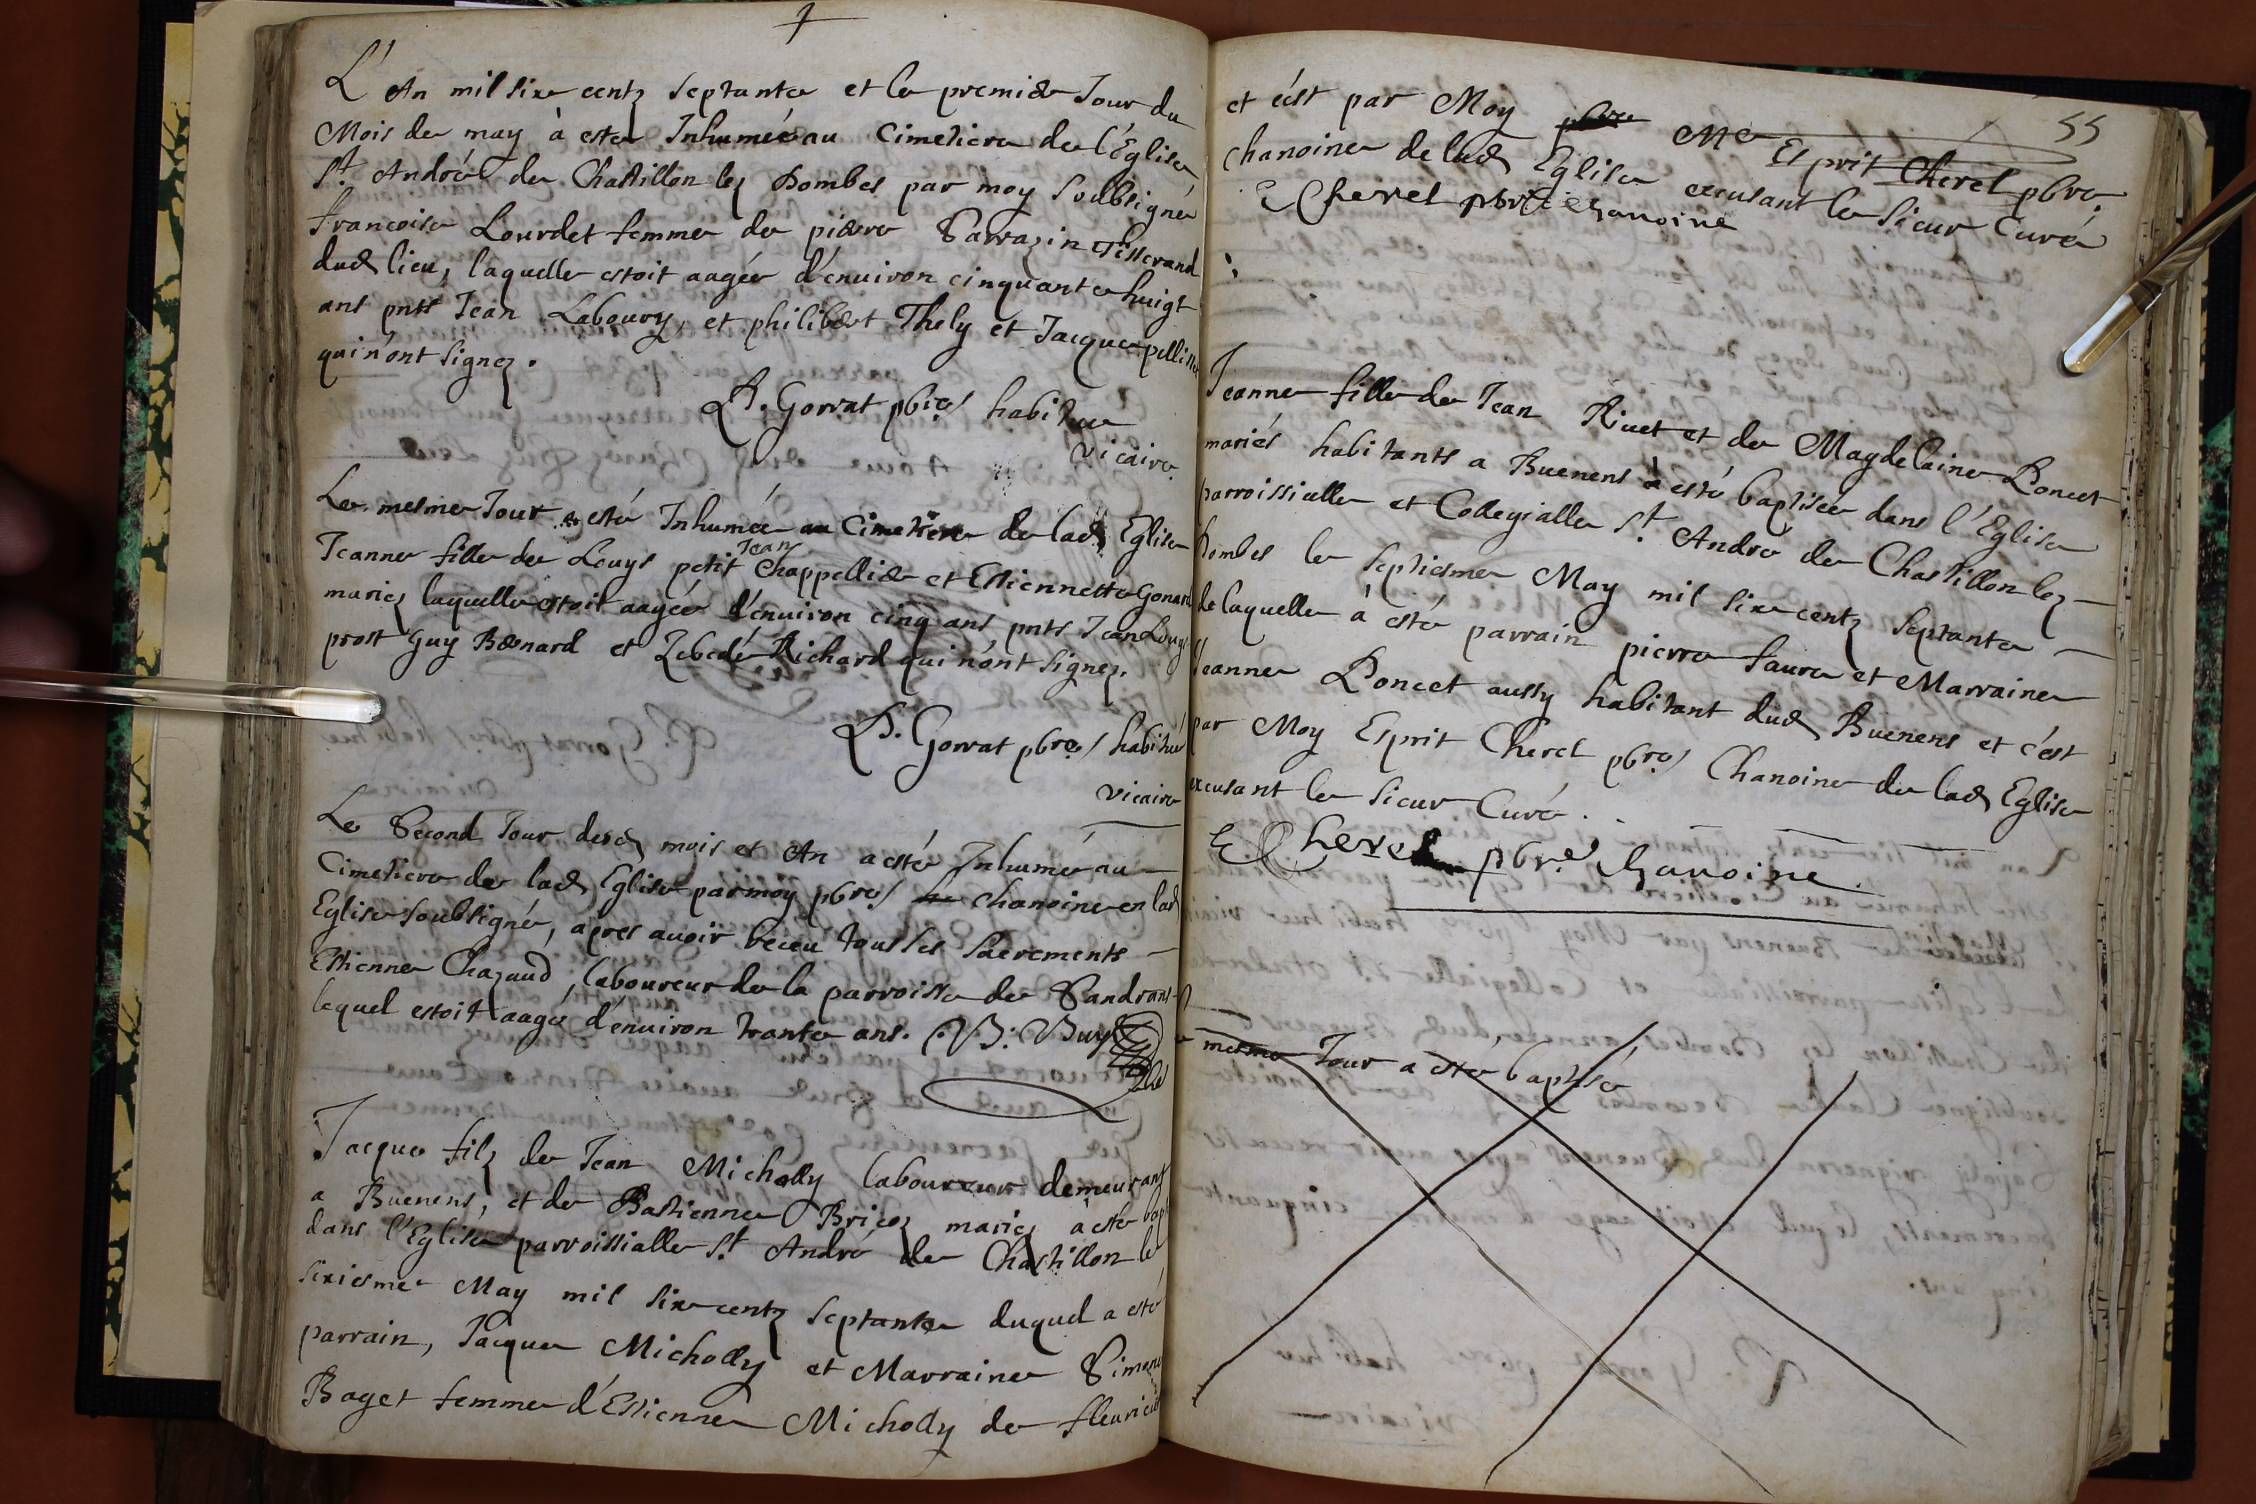 L'An mil sixe centz septante et le premier Jour du
Mois de may à este Inhumée au Cimetiere de l'Eglise
St André de Chastillon lez Dombes par moy soubsigné
francoise Lourdet femme de pierre Sarrazin Tisserand
dud lieu, laquelle estoit aagée d'environ cinquante huigt
ans pnts Jean Laboury, et philibert Thely et Jacque pellin
qui n'ont signez.
P. Gorrat pbre habitue
vicaire
Le mesme Jour a esté Inhumée au Cimetiere de lad Eglise
Jean
Jeanne fille de Louys petit Chappellier et Estiennette Gonard
mariez laquelle estoit aagée d'environ cinq ans, pnts Jean Louys
prost Guy Bernard et Zebedé Richard qui n'ont signez.
P. Gorrat pbre habitué
vicaire
Le Second Jour desd mois et An a esté Inhumé au
Cimetiere de lad Eglise par moy pbre chanoine en lad
Eglise soubsigné, apres avoir receu tous les sacrements
Estienne Chazaud, laboureur de la parroisse de Sandrans
lequel estoit aagé d'environ trante ans. B. Buy
Jacque filz de Jean Micholly laboureur demeurant
a Buenens, et de Bastienne Bricoz mariez à esté bapt
dans l'Eglise parroissialle St André de Chastillon le
sixiesme May mil sixe centz septante duquel a esté
parrain, Jacque Micholly et Marraine Simone
Baget femme d'Estienne Micholly de fleurieu
55
et c'est par Moy pbre Me Esprit Cherel pbre
chanoine de lad Eglise excusant le sieur Curé
E Cherel pbre chanoine
Jeanne fille de Jean Rivet et de Magdelaine Poncet
mariés habitants a Buenens à esté baptisée dans l'Eglise
parroissialle et Collegialle St Andre de Chastillon lez
Dombes le septiesme May mil sixe centz septante
de laquelle à esté parrain pierre faure et Marraine
Jeanne Poncet aussy habitant dud Buenens et c'est
par Moy Esprit Cherel pbre Chanoine de lad Eglise
excusant le sieur Curé.
E Cherel pbre chanoine
mesme Jour a esté baptisé